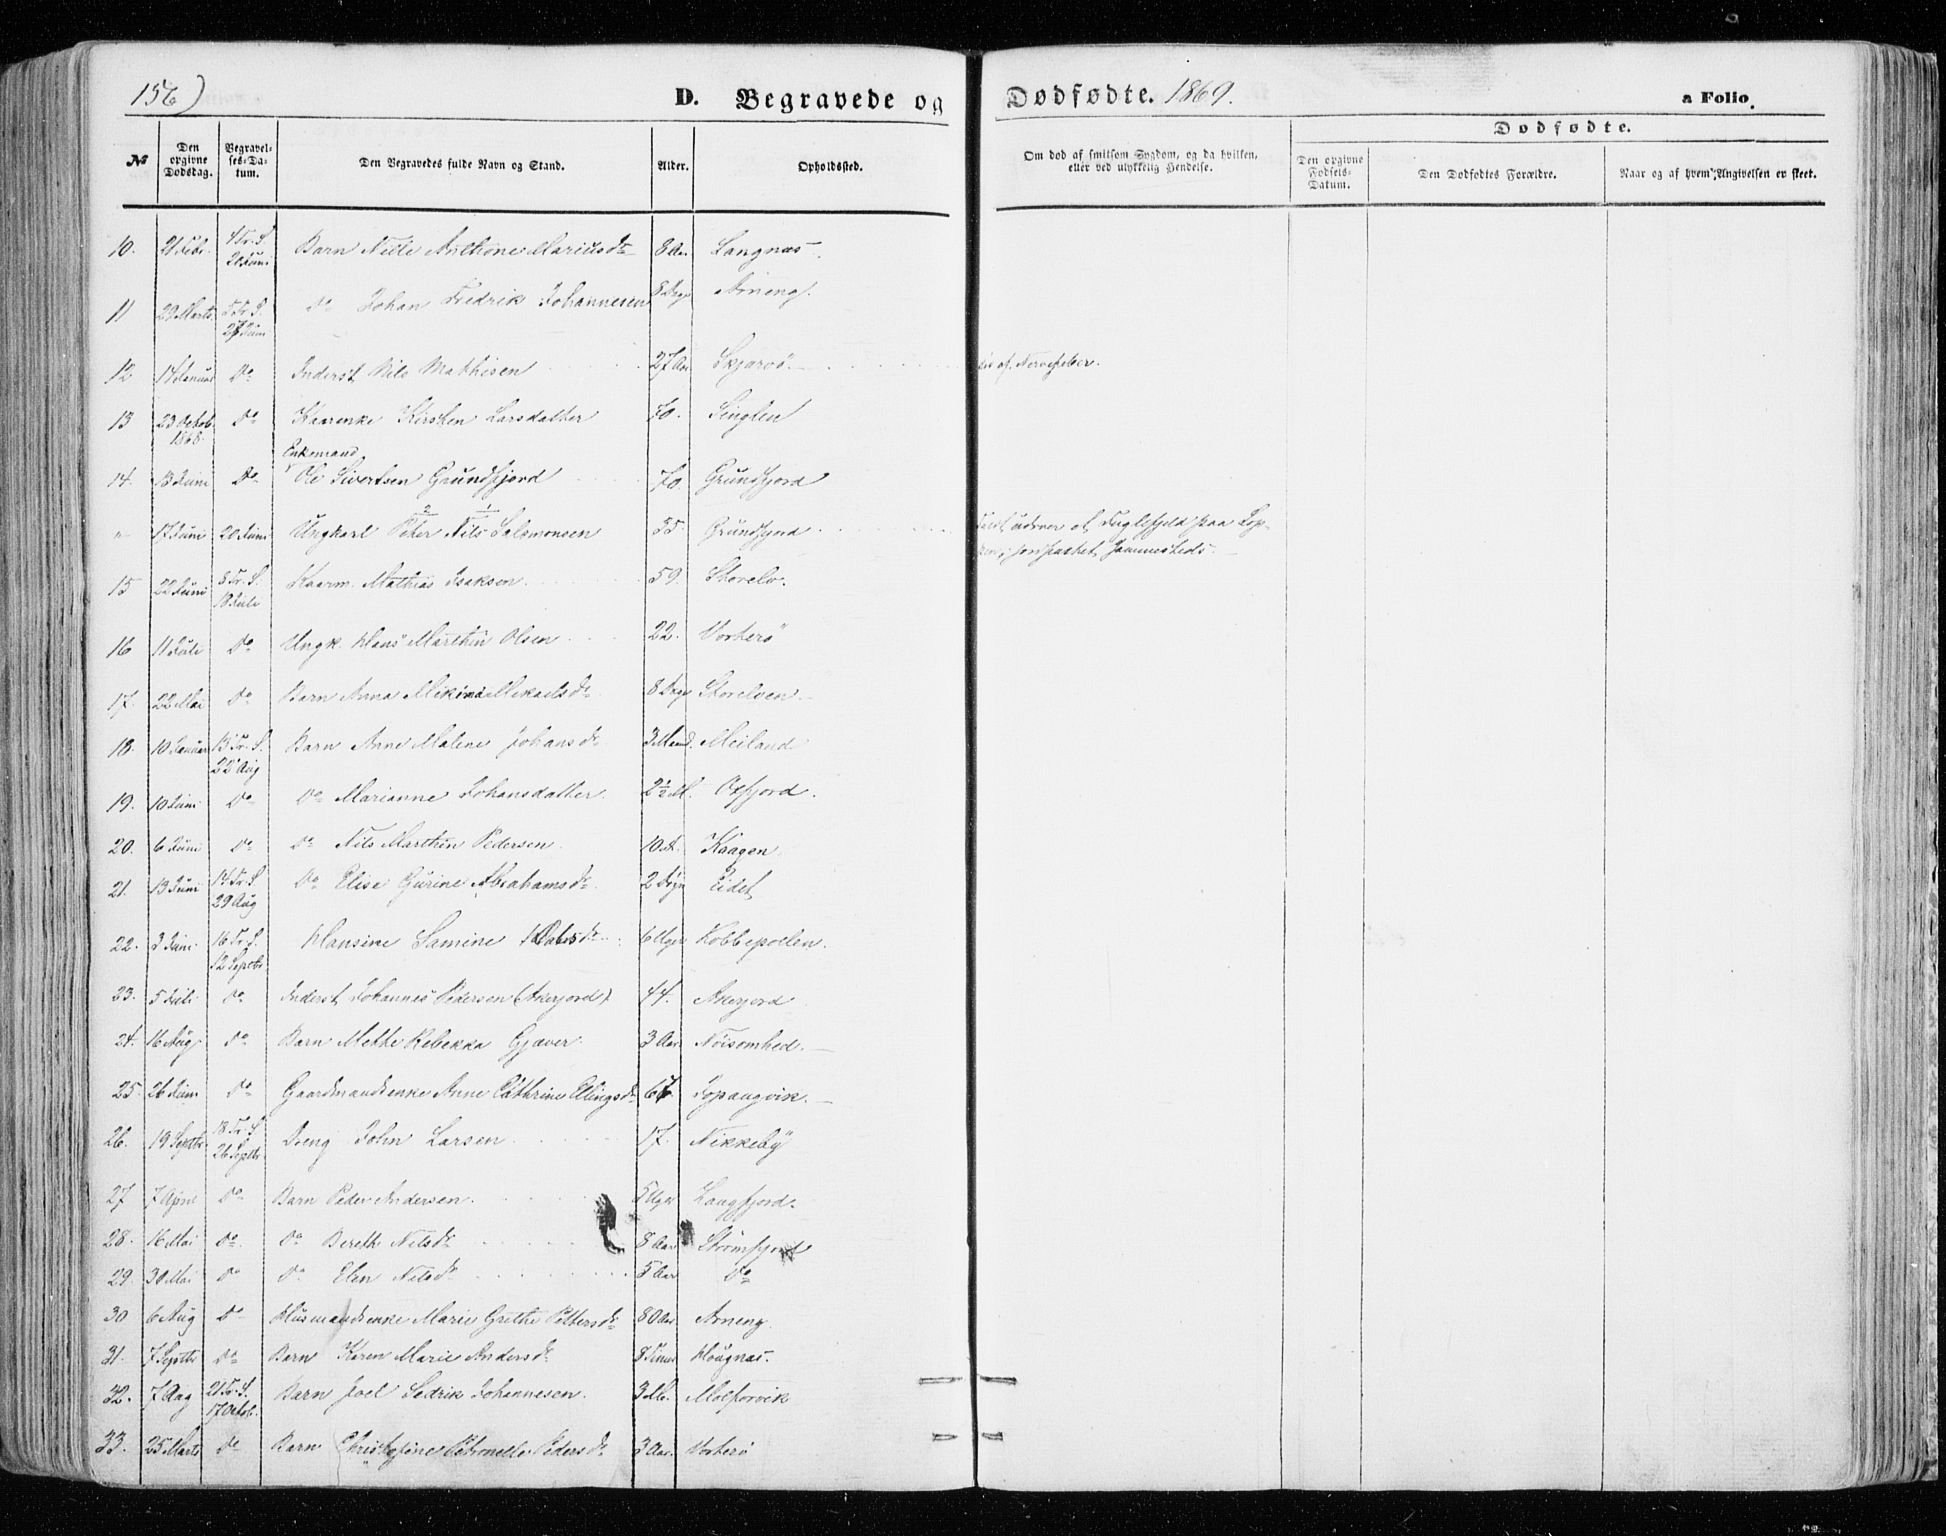 156)
D. Begravede og Dødfødte. 1869.
a Folio.
№
Den opgivne Dødsdag.
Begravelses-Datum.
Den Begravedes fulde Navn og Stand.
Alder.
Opholdssted.
Om død af smitsom Sygdom, og da hvilken, eller ved ulykkelig Hendelse.
Dødfødte.
Den opgivne Fødsels-Datum.
Den Dødfødtes Forældre.
Naar og af hvem Angivelsen er skeet.
10. 21 Febr. 4 Tr. S. 20 Juni Barn Nille Anthone Mariusdr 8 Aar Langnæs
11 29 Marts 5 Tr. S. 27 Juni Do Johan Fredrik Johannesen 8 Dage Arneng.
12 14 Januar Do Inderst Nils Mathisen 27 Aar Skjærvø. af Nervefeber.
13 23 Octob. 1868. Do Kaarenke Kirsten Larsdatter 70. Singlen
14. 13 Juni Do Enkemand Ole Sivertsen Grundfjord 70. Grundfjord
" 17 Juni 20 Juni Ungkarl Peter 2 Nils 1 Salomonsen 35 Grundfjord. udover et Fuglefjeld paa
15 22 Juni 8 Tr. S. 18 Juli Kaarm. Mathias Isaksen 59. Storelv.
16 11 Juli Do Ungk. Hans Marthin Olsen 22. Vorterø
17. 22 Mai Do Barn Anna Mikinia Mikaelsdr 8 Dage Storelven
18. 10 Januar 13 Tr. S. 22 Aug Barn Anne Malene Johansdr 3 Maand. Meiland
19. 10 Juni Do Do Marianne Johansdatter 2½ M. Oxfjord.
20. 6 Juni Do Do Nils Marthin Pedersen 10 A. Kaagen
21. 13 Juni 14 Tr. S. 29 Aug Do Elise Gurine Abrahamsdr 2 Døgn Eidet
22. 3 Juni 16 Tr. S. 12 Septbr Hansine Samine 6 Uger Kobbepollen.
23. 5 Juli Do Inderst Johannes Pedersen (Akerjord) 44. Akerjord
24. 16 Aug Do Barn Mette Rebekka Gjæver 3 Aar Nöisomhed.
25. 26 Juni Do Gaardmandsenke Anne Cathrine Ellingsdr 67 Topangvik.
26. 19 Septbr 18 Tr. S. 26 Septbr Dreng John Larsen 17. Nikkeby
27 7 April Do Barn Peder Andersen. 5 Uger Langfjord.
28. 16 Mai Do Do Berethe Nilsdr 8 Aar Strømfjord
29. 30 Mai Do Do Elen Nilsdr 5 Aar Do
30 6 Aug Do Husmandsenke Marie Grethe Pettersdr 80 Aar Arneng
31. 7 Septbr Do Barn Karen Marie Andersdr 8 Timer Hougnæs.
32. 7 Aug 21 Tr. S. 17 Octob. Barn Joel Sedrik Johannesen. 3 M. Molforvik
33. 25 Marts Do Barn Petronelle Pedersdr 3 Aar. Vorterø